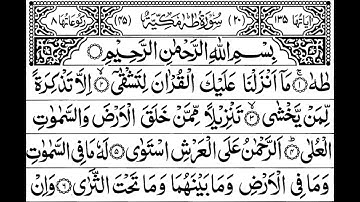 اٰیَاتُهَا ١٣٥ (٢٠) سُوْرَةُ طٰهٰ مَكِّيَّةٌ (٤٥) رُكُوْعَاتُهَا ٨
بِسْمِ اللّٰهِ الرَّحْمٰنِ الرَّحِيْمِ
طٰهٰ ۝١ مَاۤ اَنْزَلْنَا عَلَيْكَ الْقُرْاٰنَ لِتَشْقٰۤى ۝٢ اِلَّا تَذْكِرَةً
لِّمَنْ يَّخْشٰى ۝٣ تَنْزِيْلًا مِّمَّنْ خَلَقَ الْاَرْضَ وَالسَّمٰوٰتِ
الْعُلٰى ۝٤ اَلرَّحْمٰنُ عَلَى الْعَرْشِ اسْتَوٰى ۝٥ لَهٗ مَا فِى السَّمٰوٰتِ
وَمَا فِى الْاَرْضِ وَمَا بَيْنَهُمَا وَمَا تَحْتَ الثَّرٰى ۝٦ وَاِنْ